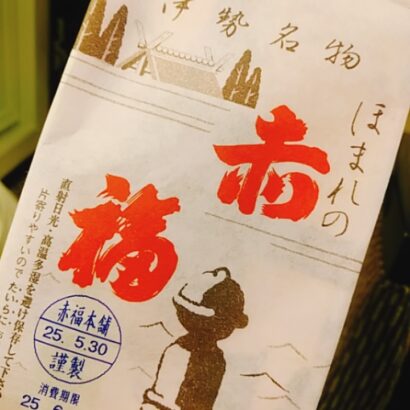 伊勢名物
ほまれの
赤
福
直射日光・高温多湿を避け保存して下さ
片寄りやすいので たいらに
赤福本舗
25. 5.30
謹製
消費期限
25. 6